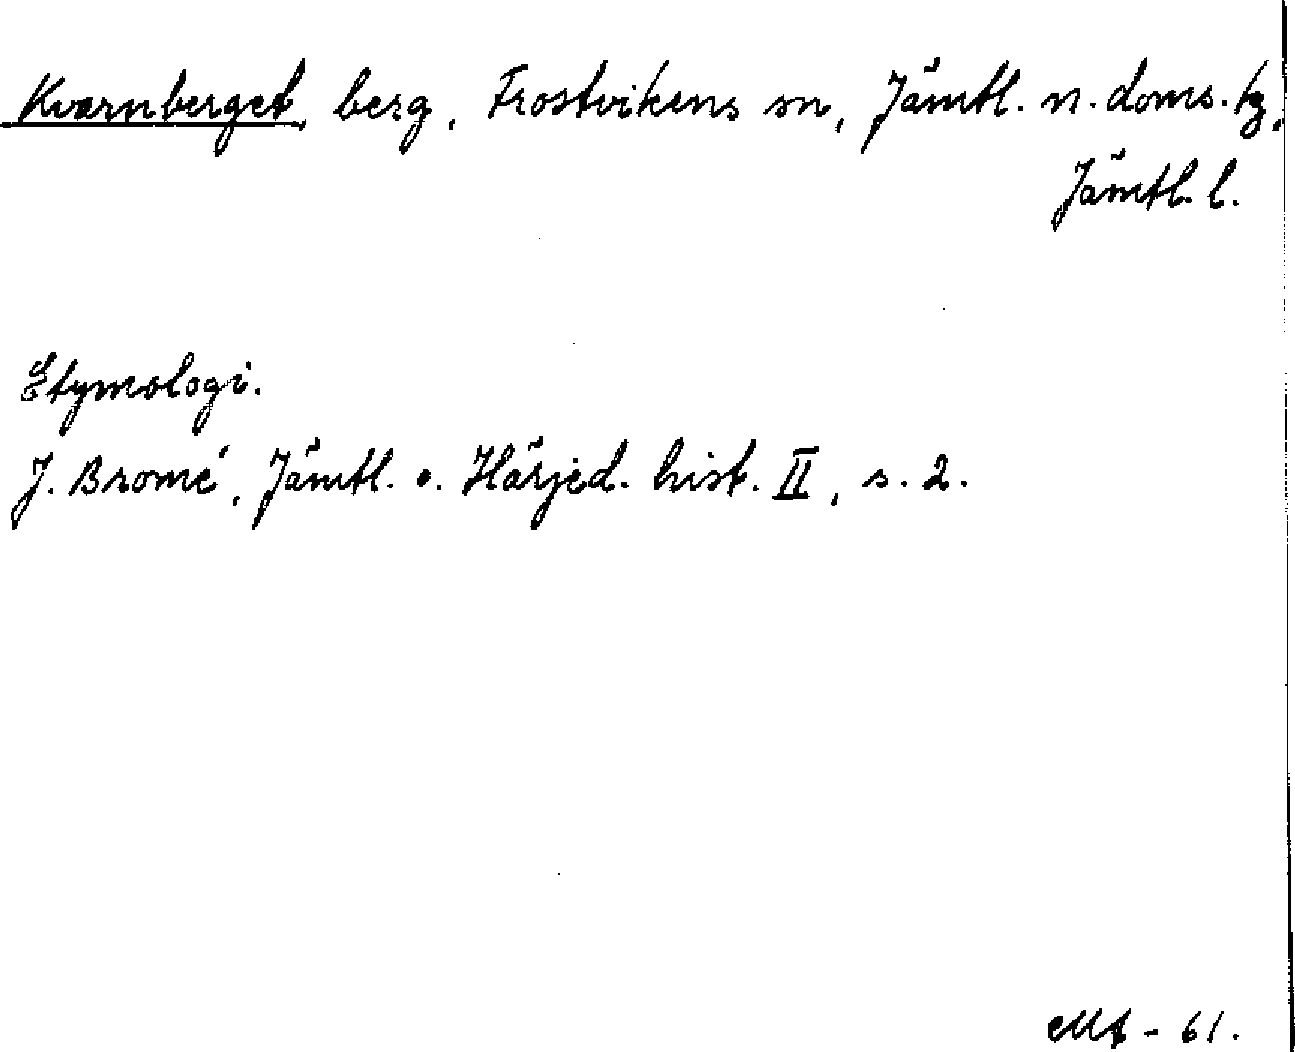 Kvarnberget, berg, Frostvikens sn, Jämtl. n. doms. tg,
Jämtl. l.
Etymologi.
J. Bromé, Jämtl. o. Härjed. hist. II, s. 2.
- 61.